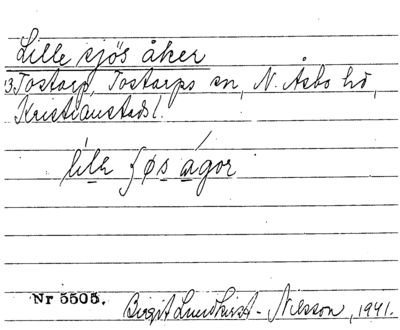 Lille sjös åker
13. Tostarp, Tostarps sn, N. Åsbo hd,
Kristianstads l.
lilɐ ʃøs ágor
Nr 5505.
Birgit Lundkvist-Nilsson, 1941.